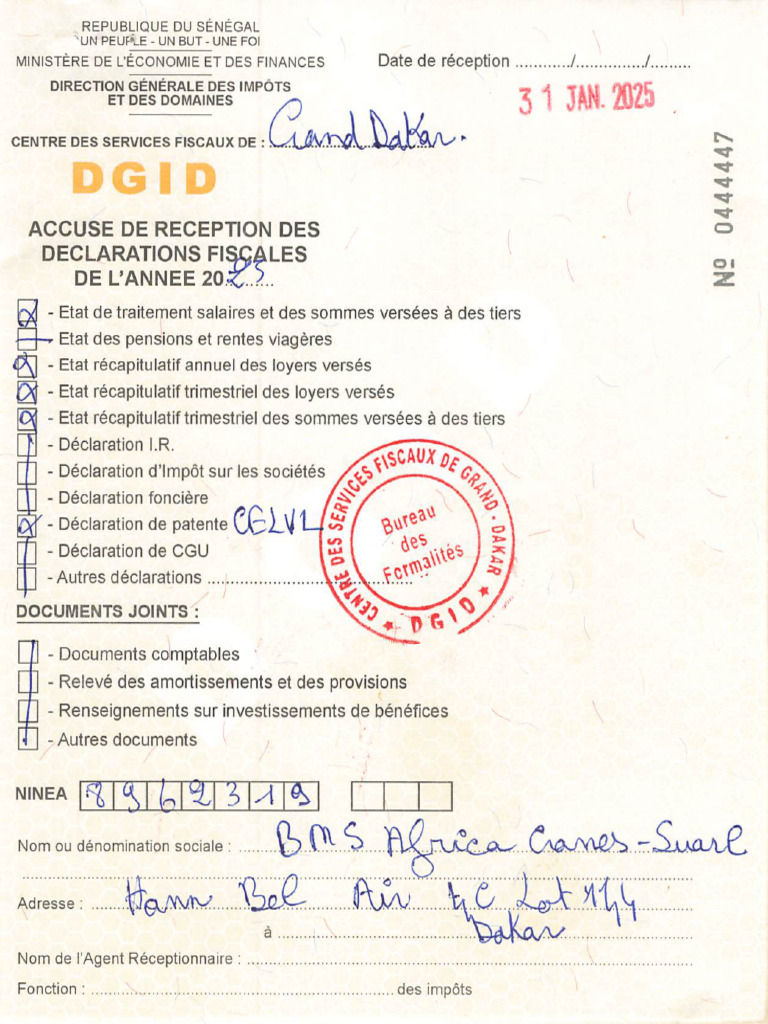 REPUBLIQUE DU SÉNÉGAL
UN PEUPLE - UN BUT - UNE FOI
MINISTÈRE DE L'ÉCONOMIE ET DES FINANCES
DIRECTION GÉNÉRALE DES IMPÔTS
ET DES DOMAINES
Date de réception ............/............../.........
31 JAN. 2025
CENTRE DES SERVICES FISCAUX DE : Grand Dakar.
DGID
Nº 0444447
ACCUSE DE RECEPTION DES
DECLARATIONS FISCALES
DE L'ANNEE 2023
- Etat de traitement salaires et des sommes versées à des tiers
- Etat des pensions et rentes viagères
- Etat récapitulatif annuel des loyers versés
- Etat récapitulatif trimestriel des loyers versés
- Etat récapitulatif trimestriel des sommes versées à des tiers
- Déclaration I.R.
- Déclaration d'Impôt sur les sociétés
- Déclaration foncière
- Déclaration de patente CELVL
- Déclaration de CGU
- Autres déclarations ....................................
CENTRE DES SERVICES FISCAUX DE GRAND - DAKAR
Bureau
des
Formalités
★ DGID ★
DOCUMENTS JOINTS :
- Documents comptables
- Relevé des amortissements et des provisions
- Renseignements sur investissements de bénéfices
- Autres documents
NINEA 8962319
Nom ou dénomination sociale : BMS Africa Cranes - Suarl
Adresse : Hann Bel Air Lot 144
à Dakar
Nom de l'Agent Réceptionnaire :
Fonction : des impôts